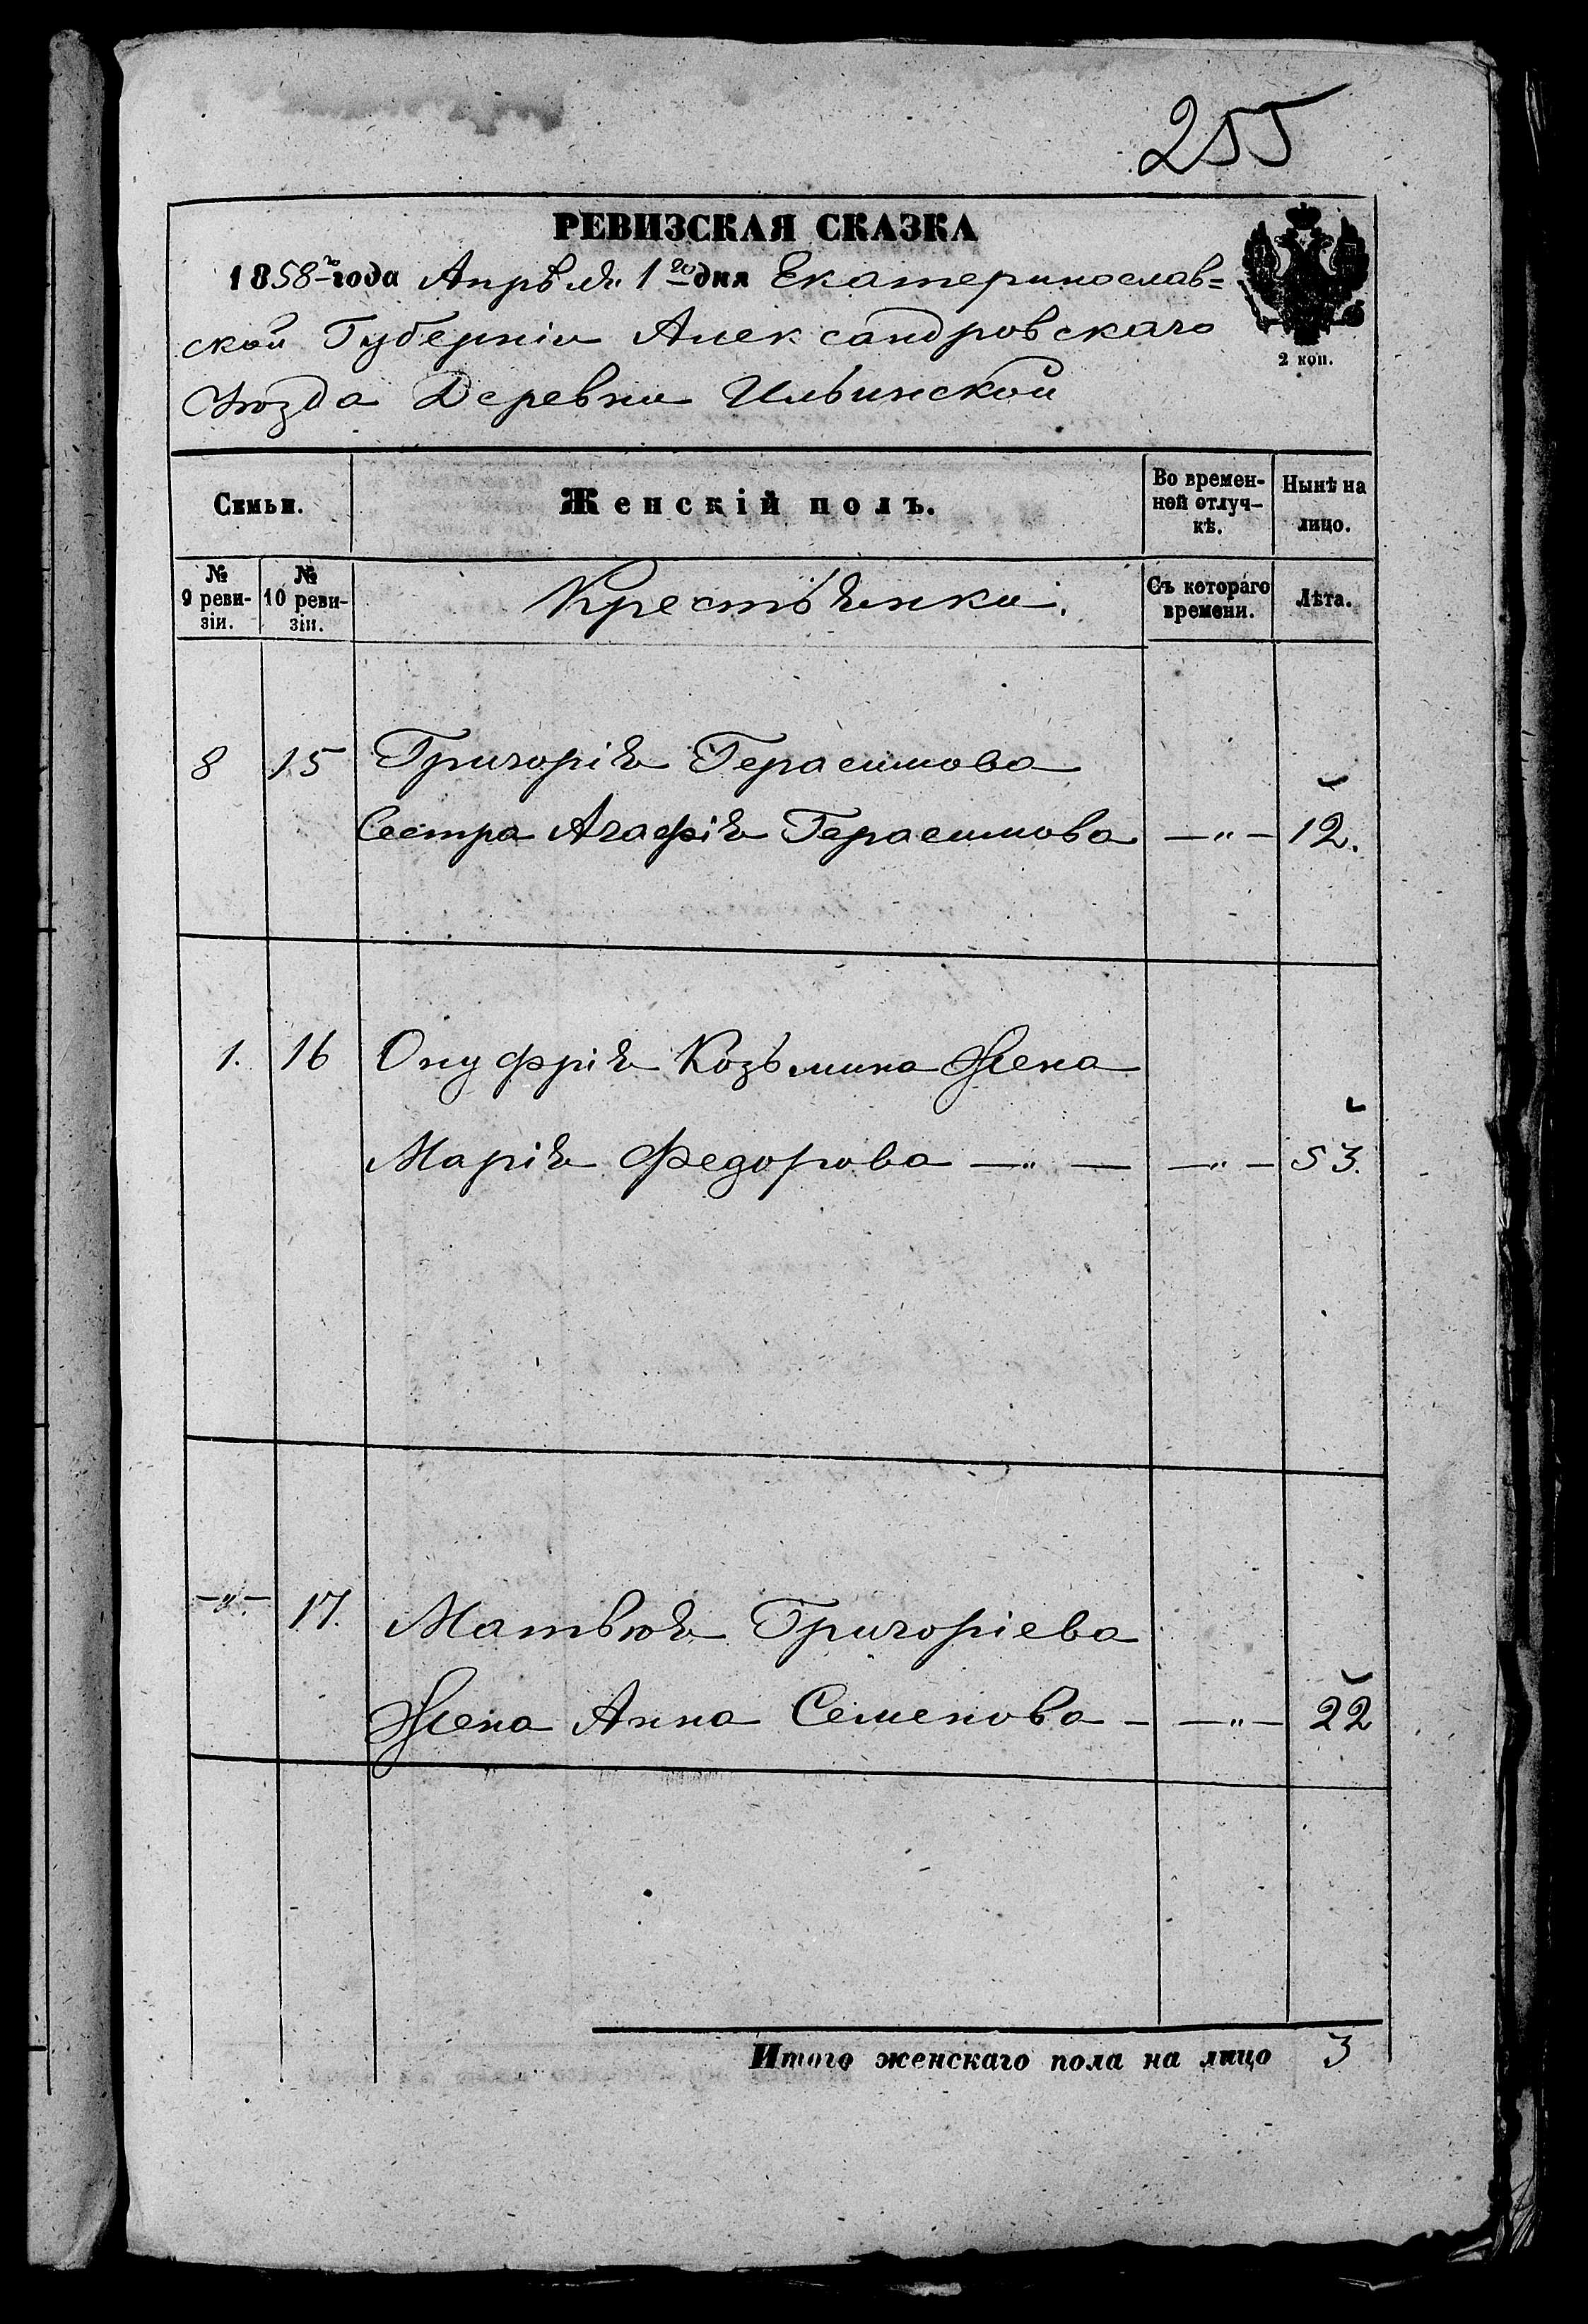 255
РЕВИЗСКАЯ СКАЗКА
1858го года Апрѣля 1го дня Екатеринослав=
ской Губерніи Александровскаго
Уѣзда Деревни Ильинской
2 коп.
Семьи.
Женскій полъ.
Во времен-
ной отлуч-
кѣ.
Нынѣ на
лицо.
№
9 реви-
зіи.
№
10 реви-
зіи.
Крестьянки.
Съ котораго
времени.
Лѣта.
8 15 Григорія Герасимова
Сестра Агафія Герасимова —„— 12.
1. 16 Онуфрія Козьмина Жена
Марія Федорова —„— —„— 53.
—„— 17. Матвѣя Григоріева
Жена Анна Семенова — —„— 22
Итого женскаго пола на лицо 3